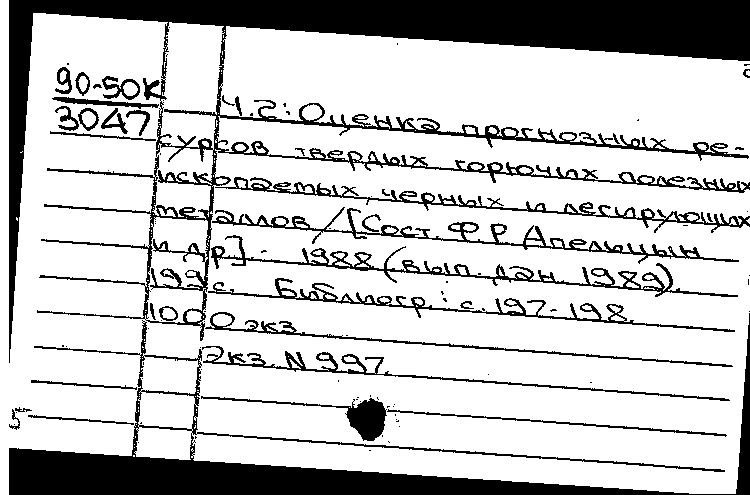 90-50К
3047
Ч.2: Оценка прогнозных ре-
сурсов твердых горючих полезных
ископаемых, черных и легирующих
металлов / [Сост. Ф.Р. Апельцын
и др]. - 1988 (вып. дан. 1989).
199 с. Библиогр.: с. 197-198.
1000 экз.
Экз. N 997.
5